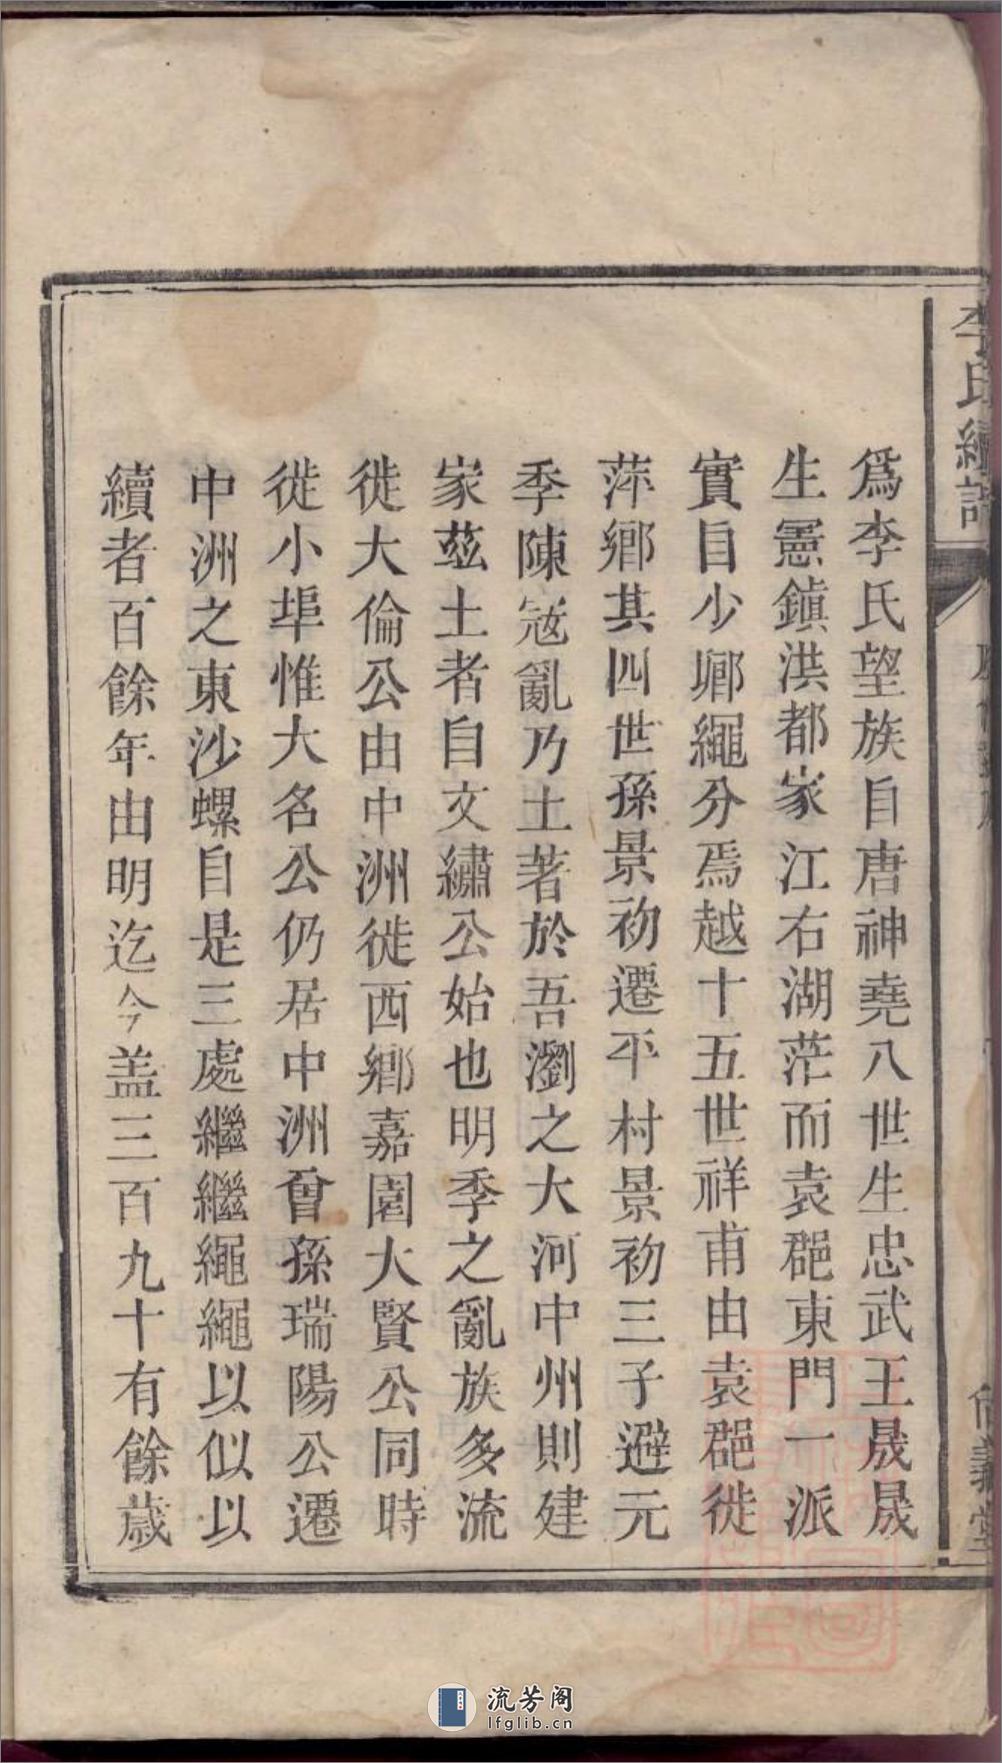 李氏續譜
爲李氏望族自唐神堯八世生忠武王晟晟
生憲鎮洪都家江右湖茫而袁郡東門一派
實自少鄉繩分焉越十五世祥甫由袁郡徙
萍鄉其四世孫景初遷平村景初三子避元
季陳寇亂乃土著於吾瀏之大河中州則建
家茲土者自文繡公始也明季之亂族多流
徙大倫公由中洲徙西鄉嘉園大賢公同時
徙小埠惟大名公仍居中洲曾孫瑞陽公遷
中洲之東沙螺自是三處繼繼繩繩以似以
續者百餘年由明迄今盖三百九十有餘歲
流芳阁
lfglib.cn